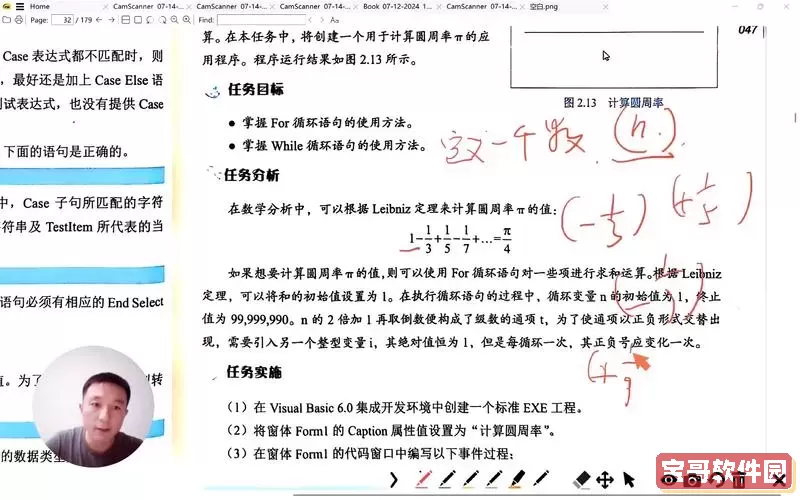 Home
CamScanner 07-14-
CamScanner 07-14-
CamScanner 07-14-
Book 07-12-2024 1...
CamScanner 07-14-
空白.png
Page: 32 / 179
Find:
047
Case 表达式都不匹配时，则
，最好还是加上 Case Else 语
测试表达式，也没有提供 Case
下面的语句是正确的。
中，Case 子句所匹配的字符
字符串及 TestItem 所代表的当
语句必须有相应的 End Select
的数据类
算。在本任务中，将创建一个用于计算圆周率π的应
用程序。程序运行结果如图 2.13 所示。
图 2.13 计算圆周率
任务目标
● 掌握 For 循环语句的使用方法。
● 掌握 While 循环语句的使用方法。
定义一个数 (n.)
任务分析
在数学分析中，可以根据 Leibniz 定理来计算圆周率π的值：
(-1/3) (+1/5)
1-1/3+1/5-1/7+…=π/4
如果想要计算圆周率π的值，则可以使用 For 循环语句对一些项进行求和运算。根据 Leibniz
定理，可以将和的初始值设置为 1。在执行循环语句的过程中，循环变量 n 的初始值为 1，终止
值为 99,999,990。n 的 2 倍加 1 再取倒数便构成了级数的通项 t，为了使通项以正负形式交替出
现，需要引入另一个整型变量 i，其绝对值恒为 1，但是每循环一次，其正负号应变化一次。
任务实施
（1）在 Visual Basic 6.0 集成开发环境中创建一个标准 EXE 工程。
（2）将窗体 Form1 的 Caption 属性值设置为“计算圆周率”。
（3）在窗体 Form1 的代码窗口中编写以下事件过程：
宝哥软件园